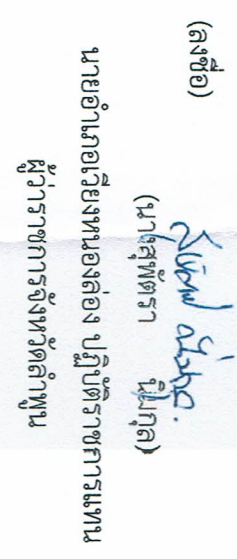 (ลงชื่อ)
(นายสุพัตรา นิ่มกุล)
นายอำเภอเวียงหนองล่อง ปฏิบัติราชการแทน
ผู้ว่าราชการจังหวัดลำพูน